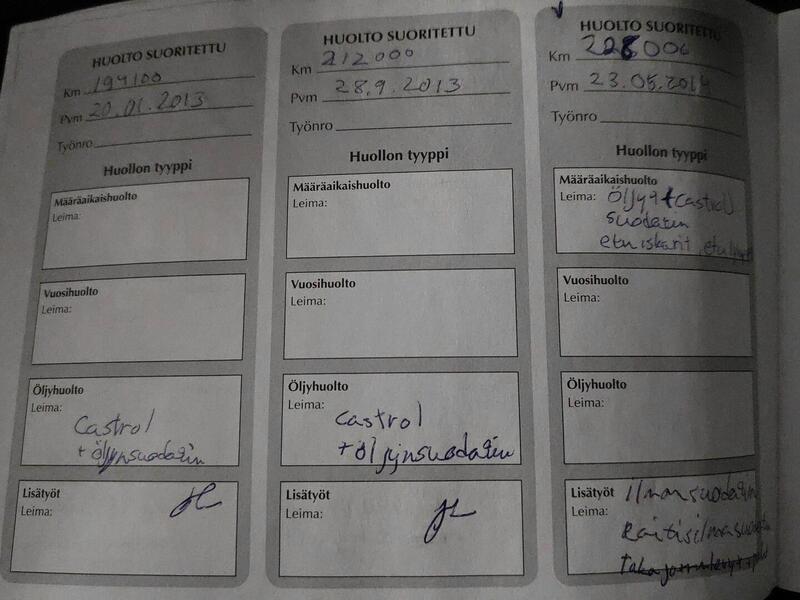 HUOLTO SUORITETTU
Km 194100
Pvm 20.01.2013
Työnro
Huollon tyyppi
Määräaikaishuolto
Leima:
Vuosihuolto
Leima:
Öljyhuolto
Leima:
Castrol
+ öljynsuodatin
Lisätyöt
Leima:
HUOLTO SUORITETTU
Km 212000
Pvm 28.9.2013
Työnro
Huollon tyyppi
Määräaikaishuolto
Leima:
Vuosihuolto
Leima:
Öljyhuolto
Leima:
Castrol
+ öljynsuodatin
Lisätyöt
Leima:
HUOLTO SUORITETTU
Km 228000
Pvm 23.05.2014
Työnro
Huollon tyyppi
Määräaikaishuolto
Leima: Öljyt Castrol
suodatin
etuiskarit
Vuosihuolto
Leima:
Öljyhuolto
Leima:
Lisätyöt ilmansuodatin
Leima: Raitisilmasuodatin